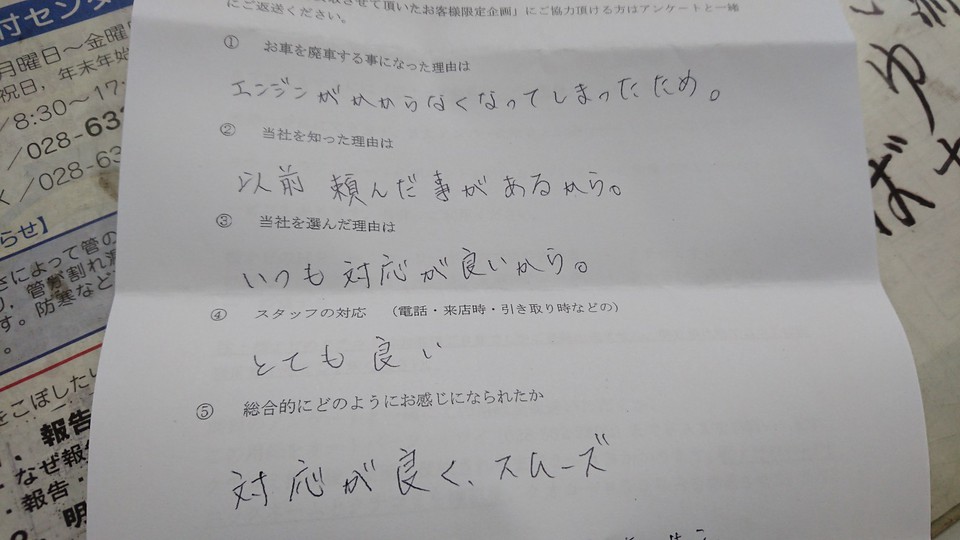 取させて頂いたお客様限定企画」にご協力頂ける方はアンケートと一緒
にご返送ください。
① お車を廃車する事になった理由は
エンジンがかからなくなってしまったため。
② 当社を知った理由は
以前 頼んだ事があるから。
③ 当社を選んだ理由は
いつも対応が良いから。
④ スタッフの対応 （電話・来店時・引き取り時などの）
とても良い
⑤ 総合的にどのようにお感じになられたか
対応が良く、スムーズ
付センタ
月曜日～金曜日
祝日，年末年始
8:30～17
/028-63
/028-63
らせ】
さによって管の
管が割れ
す。防寒など
をこぼしたい
・報告
なぜ報告
・報告・
明
ばゆ